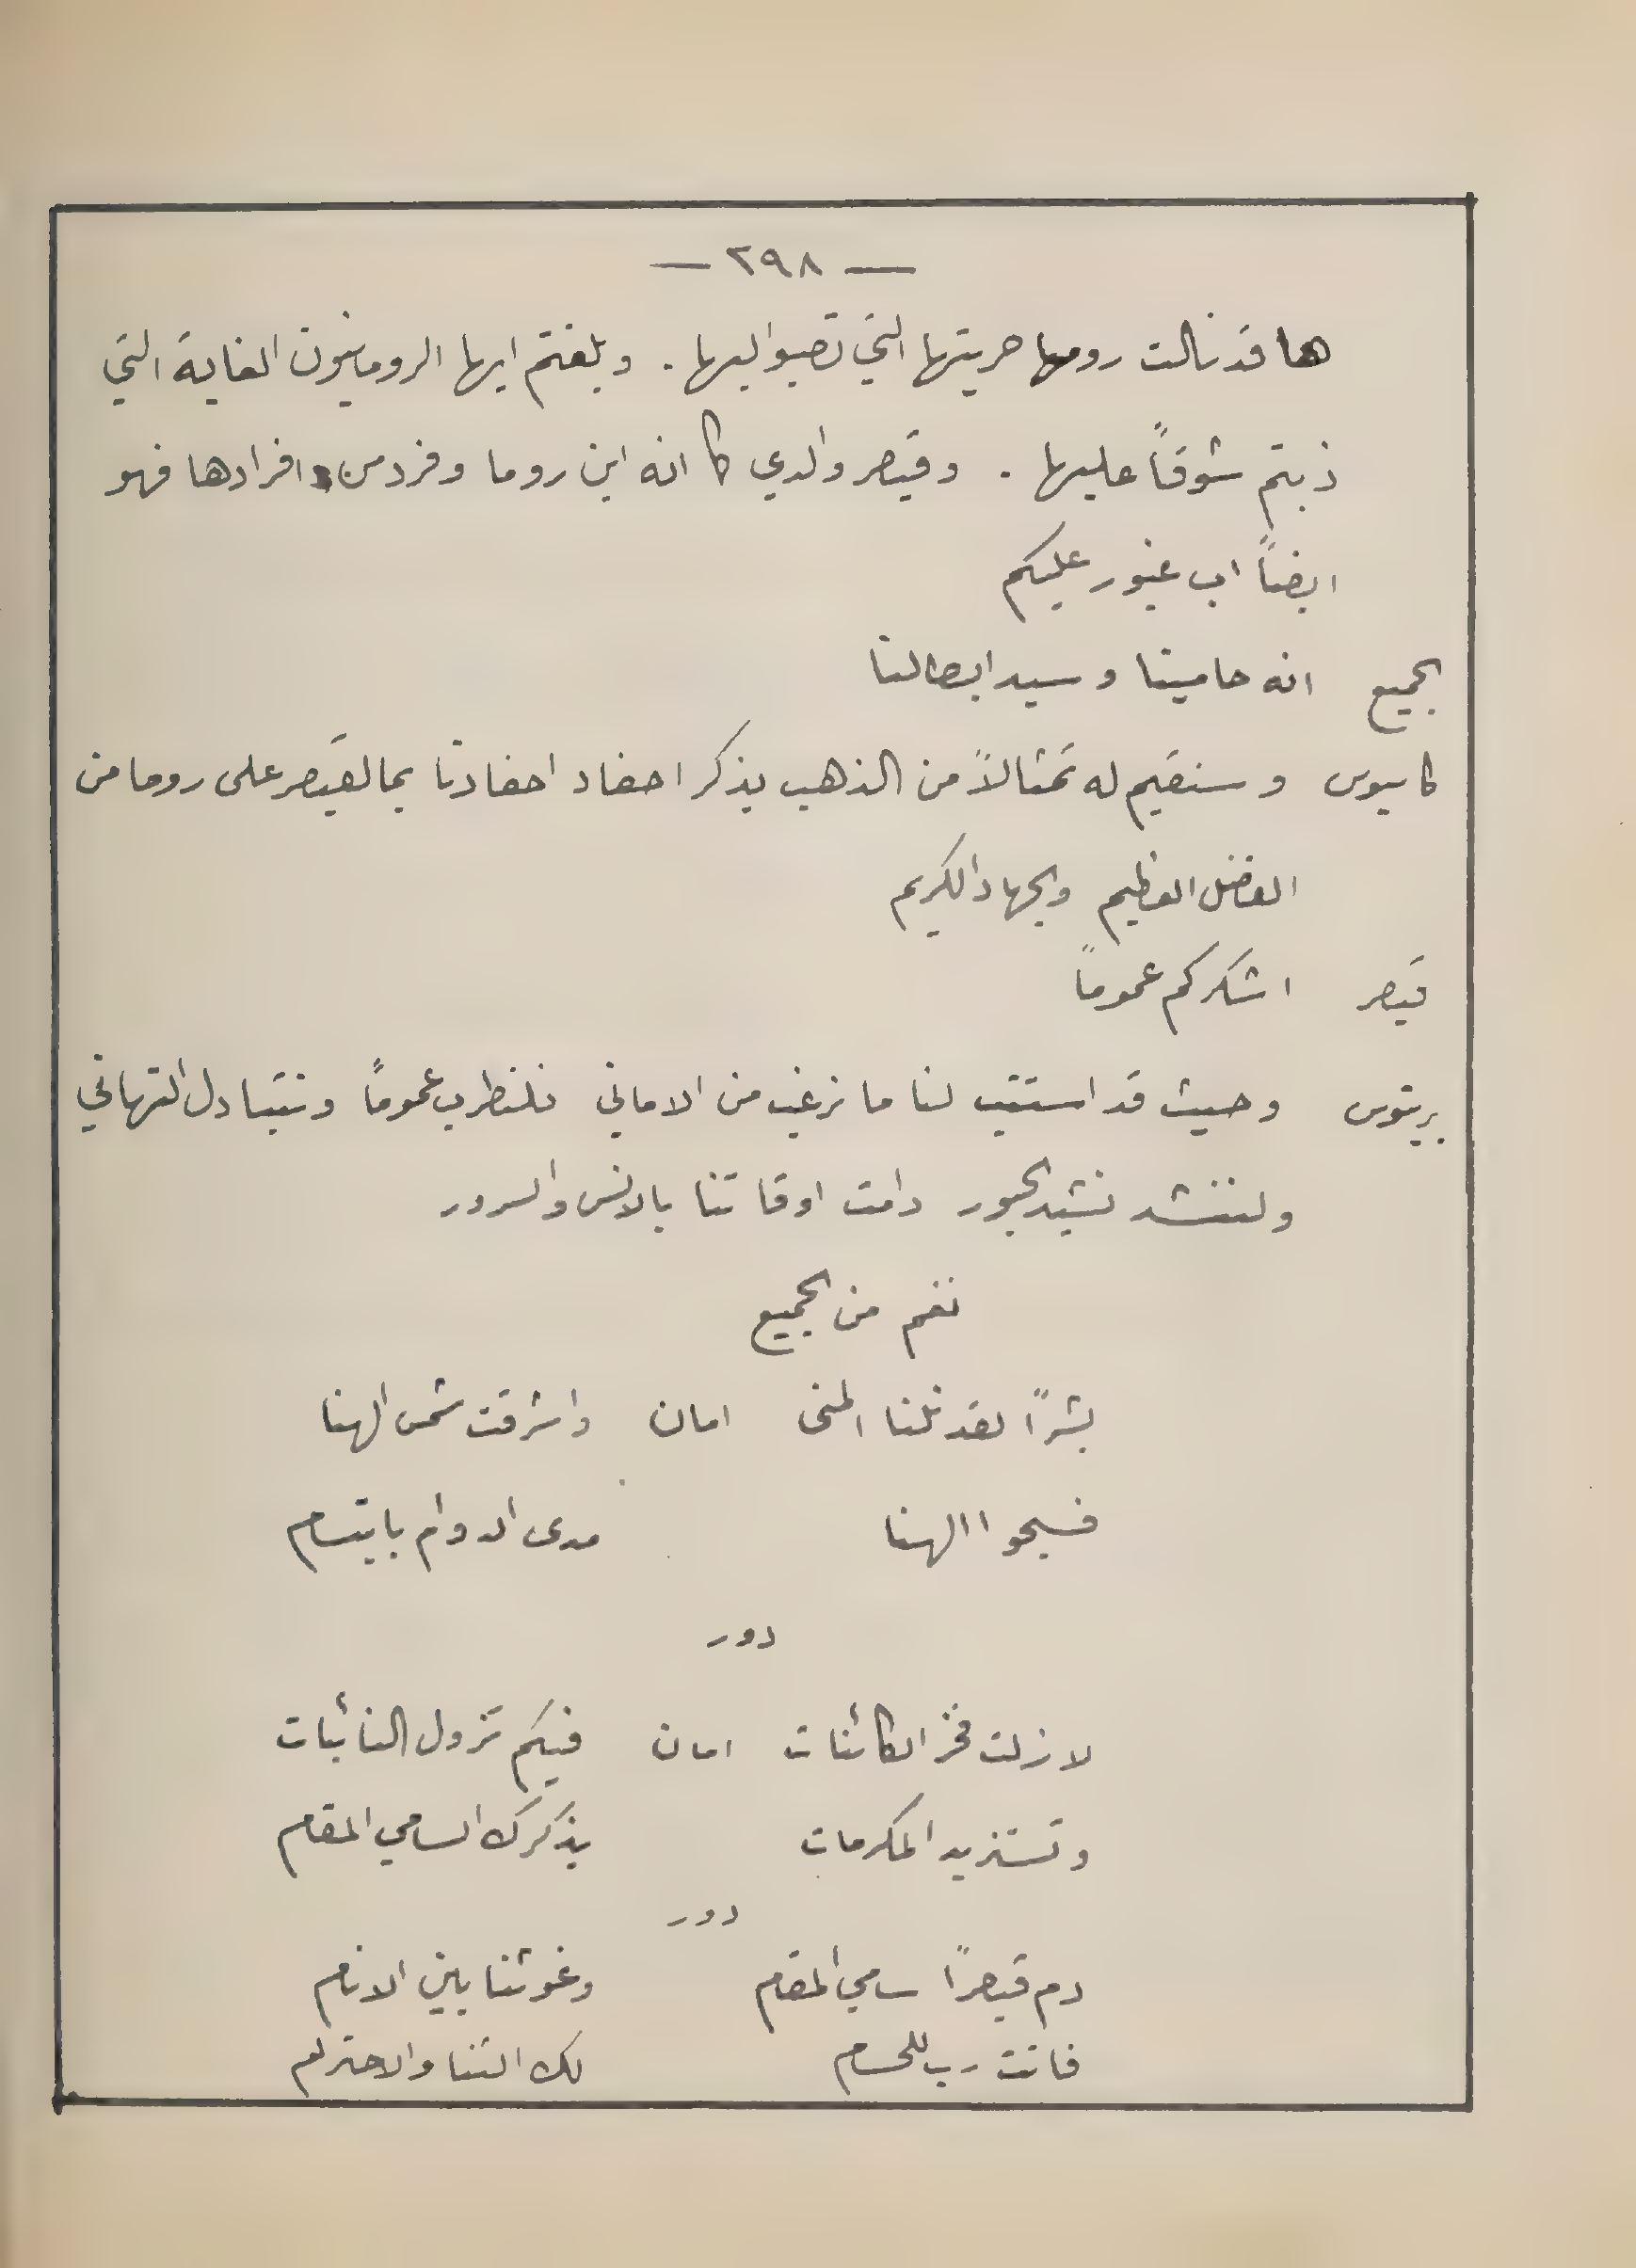 — ٢٩٨ —
ها قد نالت روما حريتها التي تصبوا اليها . وبلغتم ايها الرومانيون الغاية التي
ذبتم شوقاً عليها . وقيصر والدي كما انه ابن روما وفرد من افرادها فهو
ايضاً اب غيور عليكم
الجميع انه حامينا وسيد ابطالنا
كاسيوس وسنقيم له تمثالاً من الذهب يذكر احفاد احفادنا بما لقيصر على روما من
الفضل العظيم والجهاد الكريم
قيصر اشكركم عموماً
بريتوس وحيث قد استتب لنا ما نرغب من الاماني فلنطرب عموماً ونتبادل التهاني
ولننشد نشيد الحبور دامت اوقاتنا بالانس والسرور
نغم من الجميع
بشراً لقد نلنا المنى امان واشرقت شمس الهنا
فسبحوا الهنا مدى الدوام بابتسام
دور
لا زلت فخر الكائنات امان فيكم تزول النائبات
وتستزيد المكرمات بذكرك السامي المقام
دور
دم قيصراً سامي المقام وغوثنا بين الانام
فانت رب للحسام لك الثنا والاحترام